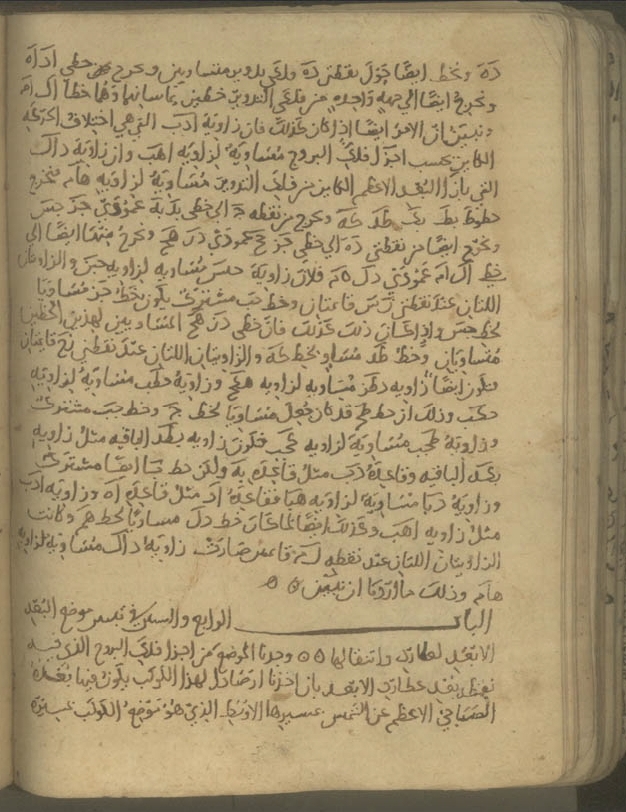 دَه ونخط ايضًا حَول نقطتي دَه فلكي تدوير متساويين ونخرج خطي اد اه
ونخرج ايضا الي جهه واحده من فلكي التدوير خطين يماسانهما وهما خطا اك ام
ونبين ان الامر ايضًا اذا كان كذلك فان زاويه ادب التي هي اختلاف الحركه
الكاين بحسب اجزا فلك البروج متساويه لزاويه اهب وان زاويه داك
التي بان البعد الاعظم الكاين من فلك التدوير مساويه لزاويه هام فنخرج
حطوط بط بح طد حه ونخرج من نقطه ج الي خطي بد به عمودي جز جس
ونخرج ايضا من نقطتي ده الي خطي جز ح عمودي دن هج ونخرج منهما ايضا الي
خطي اك ام عمودي دل هم فلان زاويه حبس مساويه لزاويه حبز والزاويتان
اللتان عند نقطتي زس قايمتان وخط جب مشترك يكون خط جز مساويا
لخط جس واذا كان ذلك كذلك فان خطي دن هج المساويين لهذين الخطين
متساويان وخط طد مساو لخط حه والزاويتان اللتان عند نقطتي نح قايمتان
فتكون ايضًا زاويه دطز مساويه لزاويه هحج وزاويه حطب مساويه لزاويه
حكب وذلك ان خط طج قد كان جعل مساويا لخط ج وخط جب مشترك
وزاويه طجب مساويه لزاويه حجب فتكون زاويه بطد الباقيه مثل زاويه
بحه الباقيه وقاعده دب مثل قاعده به ولكن خط با ايضا مشترك
وزاويه دبا مساويه لزاويه هبا فقاعده اد مثل قاعده اه وزاويه ادب
مثل زاويه اهب وكذلك ايضا لما كان خط دل مساويا لخط هم وكانت
الزاويتان اللتان عند نقطه ل م قايمتين صارت زاويه داك مساويه لزاويه
هام وذلك ما اردنا ان نبين
الباب الرابع والستين في تبيين موضع البعد
الابعد لعطارد وانتقالها وجدنا الموضع من اجزا فلك البروج الذي فيه
عطارد بعد الابعد بان اخذنا ارصادا لهذا الكوكب يكون فيها بعده
الصباحي الاعظم عن الشمس بمسيرها الاوسط الذي هو موضع الكوكب بمسيره